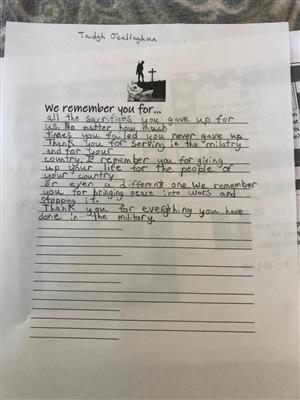 Tadgh O'callaghan
We remember you for...
all the sacrifices you gave up for
us. No matter how much
times you failed you never gave up
Thank you for serving in the milatry
and for your
country. I remember you for giving
up your life for the people of
your country
or even a different one. We remember
you for bringing peace into wars and
stopping it.
Thank you for everything you have
done in the military.